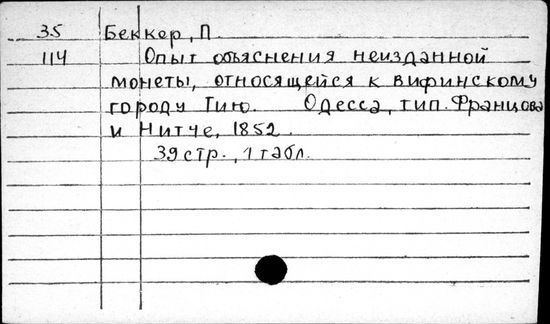 35 Беккер, П
114 Опыт объяснения неизданной
монеты, относящейся к вифинскому
городу Тию. Одесса, тип. Францова
и Нитче, 1852.
39 стр., 1 табл.